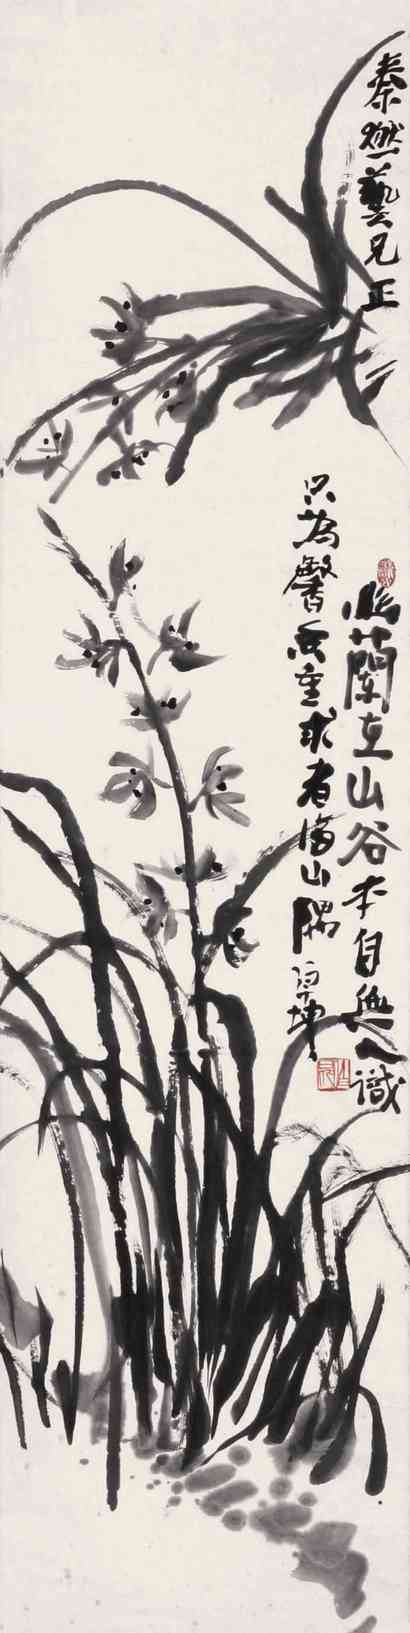 秦燃藝兄正
幽蘭在山谷本自無人識
只為馨香重求者遍山隅
坤